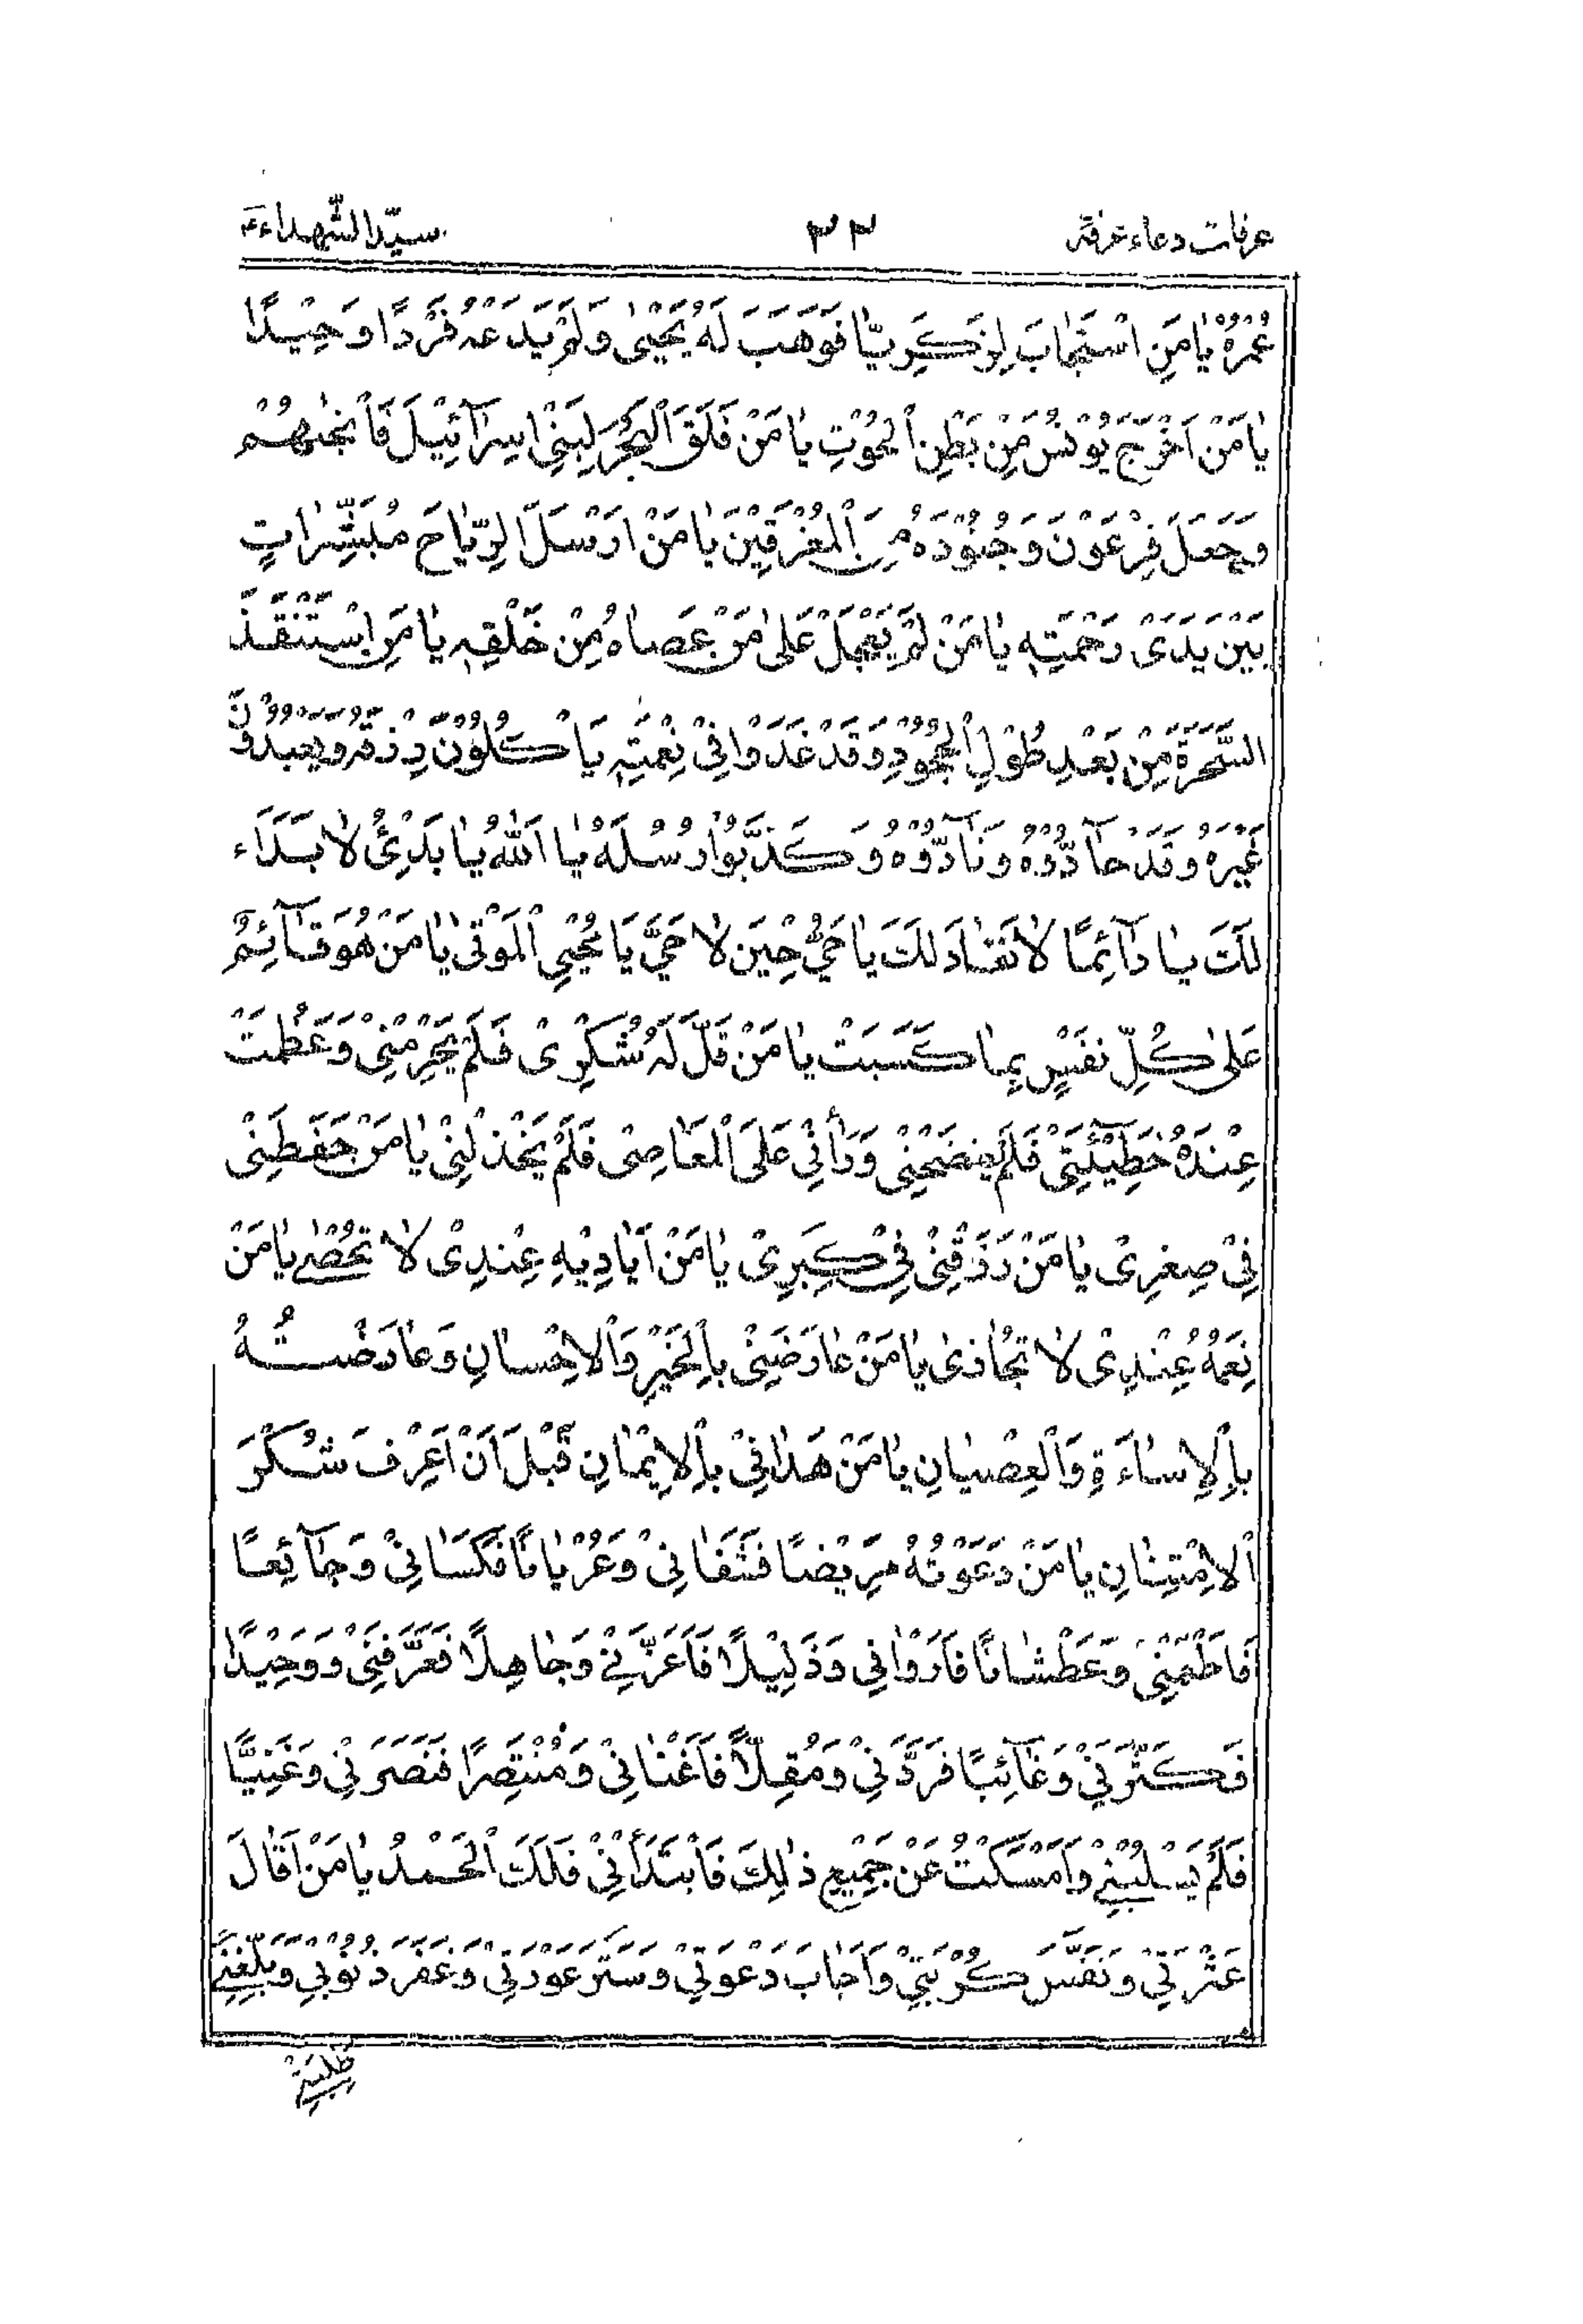 عرفات دعاء عرفة ٣٣ سيّد الشّهداء ع
عُمْرُهُ يٰا مَنِ اسْتَجٰابَ لِزَكَرِيّٰا فَوَهَبَ لَهُ يَحْيىٰ وَلَمْ يَدَعْهُ فَرْدًا وَحِيْدًا
يٰا مَنْ اَخْرَجَ يُوْنُسَ مِنْ بَطْنِ الْحُوْتِ يٰا مَنْ فَلَقَ الْبَحْرَ لِبَنِىْ اِسْرَآئِيْلَ فَاَنْجٰهُمْ
وَجَعَلَ فِرْعَوْنَ وَجُنُوْدَهُ مِنَ الْمُغْرَقِيْنَ يٰا مَنْ اَرْسَلَ الرِّيٰاحَ مُبَشِّرٰاتٍ
بَيْنَ يَدَىْ رَحْمَتِهِ يٰا مَنْ لَمْ يَعْجَلْ عَلىٰ مَنْ عَصٰاهُ مِنْ خَلْقِهِ يٰا مَنِ اسْتَنْقَذَ
السَّحَرَةَ مِنْ بَعْدِ طُوْلِ الْجُحُوْدِ وَقَدْ غَدَوْا فِىْ نِعْمَتِهِ يَاْكُلُوْنَ رِزْقَهُ وَيَعْبُدُوْنَ
غَيْرَهُ وَقَدْ حٰآدُّوْهُ وَنٰآدُّوْهُ وَكَذَّبُوْا رُسُلَهُ يٰا اَللّٰهُ يٰا بَدِىْءُ لٰا بَدَاءَ
لَكَ يٰا دٰآئِمًا لٰا نَفٰادَ لَكَ يٰا حَىُّ حِيْنَ لٰا حَىَّ يٰا مُحْيِىَ الْمَوْتىٰ يٰا مَنْ هُوَ قٰآئِمٌ
عَلىٰ كُلِّ نَفْسٍ بِمٰا كَسَبَتْ يٰا مَنْ قَلَّ لَهُ شُكْرِىْ فَلَمْ يَحْرِمْنِىْ وَعَظُمَتْ
عِنْدَهُ خَطٖيْٓئَتِىْ فَلَمْ يَفْضَحْنِىْ وَرَاٰنِىْ عَلَى الْمَعٰاصِىْ فَلَمْ يَخْذُلْنِىْ يٰا مَنْ حَفِظَنِىْ
فِىْ صِغَرِىْ يٰا مَنْ رَزَقَنِىْ فِىْ كِبَرِىْ يٰا مَنْ اَيٰادِيْهِ عِنْدِىْ لٰا تُحْصٰى يٰا مَنْ
نِعَمُهُ عِنْدِىْ لٰا تُجٰازىٰ يٰا مَنْ عٰارَضَنِىْ بِالْخَيْرِ وَالْاِحْسٰانِ وَعٰارَضْتُهُ
بِالْاِسٰاءَةِ وَالْعِصْيٰانِ يٰا مَنْ هَدٰانِىْ بِالْاِيْمٰانِ قَبْلَ اَنْ اَعْرِفَ شُكْرَ
الْاِمْتِنٰانِ يٰا مَنْ دَعَوْتُهُ مَرِيْضًا فَشَفٰانِىْ وَعُرْيٰانًا فَكَسَانِىْ وَجٰآئِعًا
فَاَطْعَمَنِىْ وَعَطْشٰانًا فَاَرْوٰانِىْ وَذَلِيْلًا فَاَعَزَّنِىْ وَجٰاهِلًا فَعَرَّفَنِىْ وَوَحِيْدًا
فَكَثَّرَنِىْ وَغٰآئِبًا فَرَدَّنِىْ وَمُقِلًّا فَاَغْنٰانِىْ وَمُنْتَصِرًا فَنَصَرَنِىْ وَغَنِيًّا
فَلَمْ يَسْلُبْنِىْ وَاَمْسَكْتُ عَنْ جَمِيْعِ ذٰلِكَ فَابْتَدَأَنِىْ فَلَكَ الْحَمْدُ يٰا مَنْ اَقٰالَ
عَثْرَتِىْ وَنَفَّسَ كُرْبَتِىْ وَاَجٰابَ دَعْوَتِىْ وَسَتَرَ عَوْرَتِىْ وَغَفَرَ ذُنُوْبِىْ وَبَلَّغَنِىْ
طَلِبَتِىْ